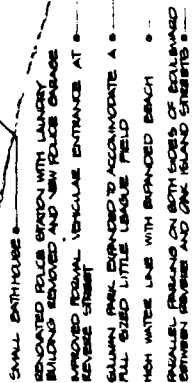 SMALL BATH HOUSE
RENOVATED POLICE STATION WITH LAUNDRY
BUILDING REMOVED AND NEW POLICE GARAGE
IMPROVED FORMAL VEHICULAR ENTRANCE AT
REVERE STREET
SULLIVAN PARK EXPANDED TO ACCOMMODATE A
FULL SIZED LITTLE LEAGUE FIELD
HIGH WATER LINE WITH EXPANDED BEACH
PARALLEL PARKING ON BOTH SIDES OF BOULEVARD
BETWEEN REVERE AND STREETS